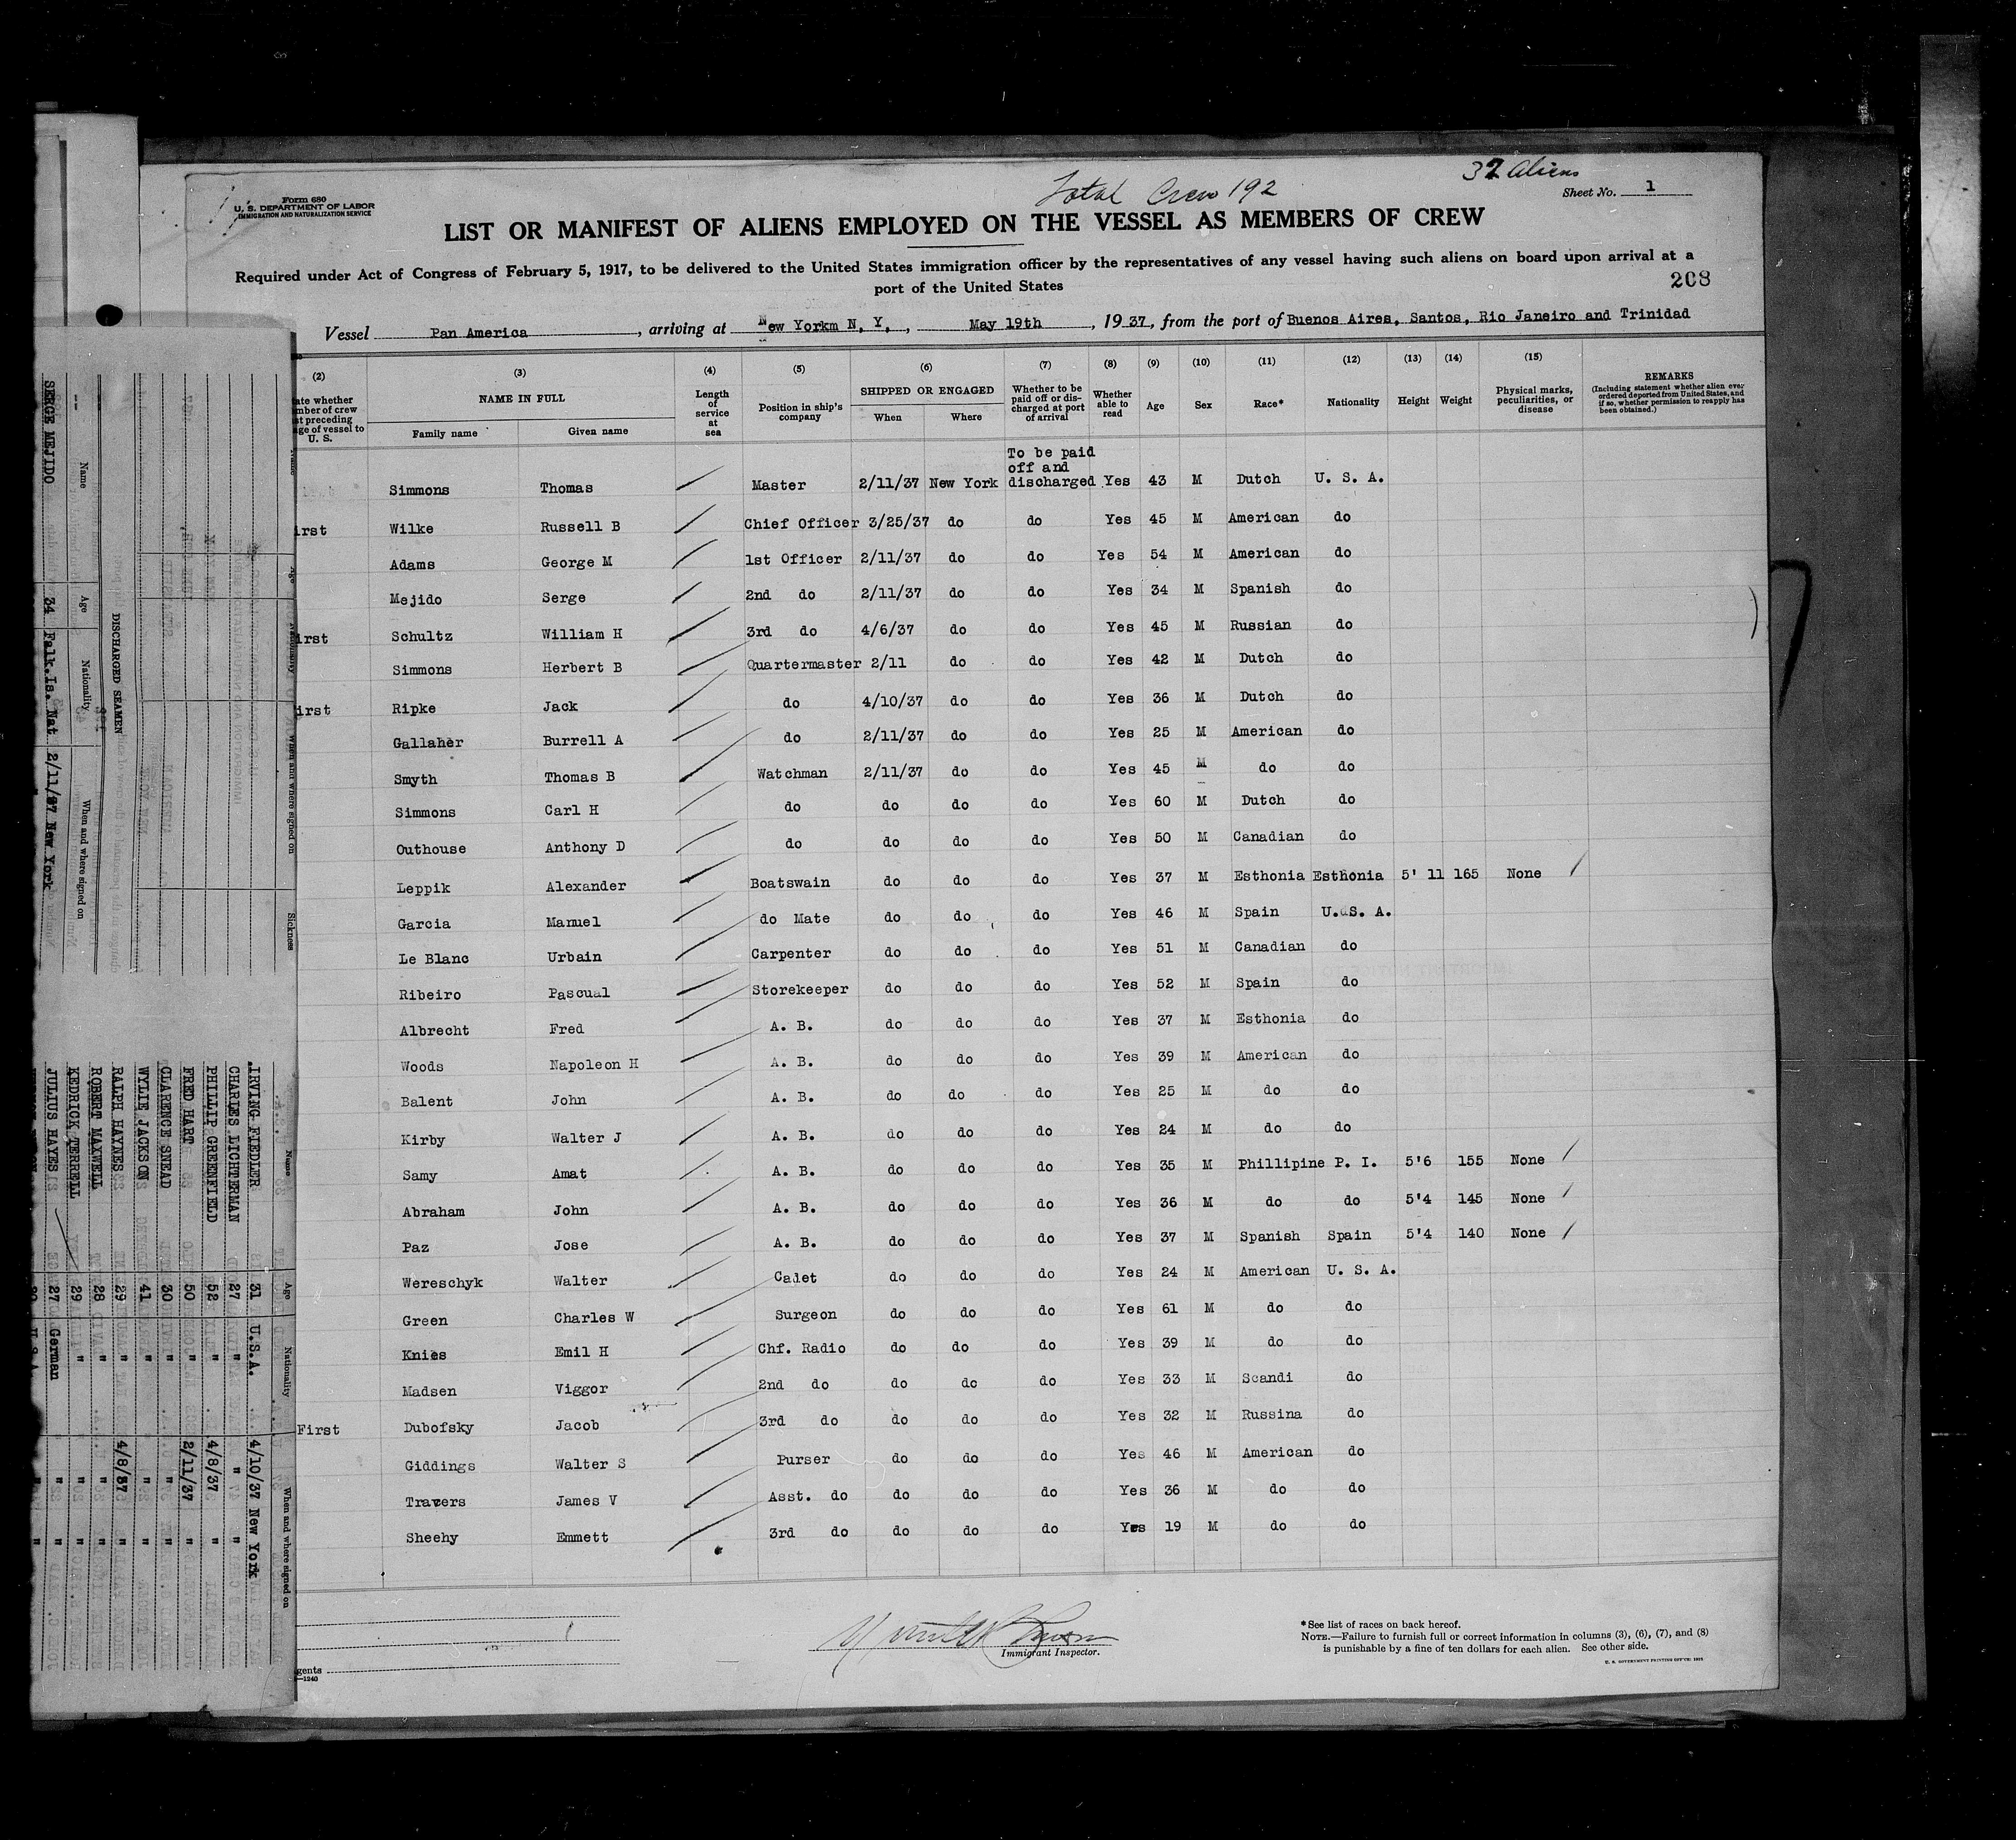 Total Crew 192
37 Aliens
Form 680
U. S. DEPARTMENT OF LABOR
IMMIGRATION AND NATURALIZATION SERVICE
Sheet No. 1
LIST OR MANIFEST OF ALIENS EMPLOYED ON THE VESSEL AS MEMBERS OF CREW
Required under Act of Congress of February 5, 1917, to be delivered to the United States immigration officer by the representatives of any vessel having such aliens on board upon arrival at a
port of the United States
208
Vessel Pan America, arriving at New Yorkm N, Y, , May 19th, 1937, from the port of Buenos Aires, Santos, Rio Janeiro and Trinidad
(2) (3) (4) (5) (6) (7) (8) (9) (10) (11) (12) (13) (14) (15)
NAME IN FULL
Family name Given name
Length of service at sea
Position in ship's company
SHIPPED OR ENGAGED
When Where
Whether to be paid off or discharged at port of arrival
Whether able to read
Age Sex Race* Nationality Height Weight
Physical marks, peculiarities, or disease
REMARKS
(Including statement whether alien ever ordered deported from United States, and if so, whether permission to reapply has been obtained.)
To be paid
off and
Simmons Thomas Master 2/11/37 New York discharged Yes 43 M Dutch U. S. A.
irst Wilke Russell B Chief Officer 3/25/37 do do Yes 45 M American do
Adams George M 1st Officer 2/11/37 do do Yes 54 M American do
Mejido Serge 2nd do 2/11/37 do do Yes 34 M Spanish do
irst Schultz William H 3rd do 4/6/37 do do Yes 45 M Russian do
Simmons Herbert B Quartermaster 2/11 do do Yes 42 M Dutch do
irst Ripke Jack do 4/10/37 do do Yes 36 M Dutch do
Gallaher Burrell A do 2/11/37 do do Yes 25 M American do
Smyth Thomas B Watchman 2/11/37 do do Yes 45 M do do
Simmons Carl H do do do do Yes 60 M Dutch do
Outhouse Anthony D do do do do Yes 50 M Canadian do
Leppik Alexander Boatswain do do do Yes 37 M Esthonia Esthonia 5' 11 165 None
Garcia Manuel do Mate do do do Yes 46 M Spain U. S. A.
Le Blanc Urbain Carpenter do do do Yes 51 M Canadian do
Ribeiro Pascual Storekeeper do do do Yes 52 M Spain do
Albrecht Fred A. B. do do do Yes 37 M Esthonia do
Woods Napoleon H A. B. do do do Yes 39 M American do
Balent John A. B. do do do Yes 25 M do do
Kirby Walter J A. B. do do do Yes 24 M do do
Samy Amat A. B. do do do Yes 35 M Phillipine P. I. 5'6 155 None
Abraham John A. B. do do do Yes 36 M do do 5'4 145 None
Paz Jose A. B. do do do Yes 37 M Spanish Spain 5'4 140 None
Wereschyk Walter Cadet do do do Yes 24 M American U. S. A.
Green Charles W Surgeon do do do Yes 61 M do do
Knies Emil H Chf. Radio do do do Yes 39 M do do
Madsen Viggor 2nd do do do do Yes 33 M Scandi do
First Dubofsky Jacob 3rd do do do do Yes 32 M Russina do
Giddings Walter S Purser do do do Yes 46 M American do
Travers James V Asst. do do do do Yes 36 M do do
Sheehy Emmett 3rd do do do do Yes 19 M do do
Immigrant Inspector.
*See list of races on back hereof.
NOTE.—Failure to furnish full or correct information in columns (3), (6), (7), and (8)
is punishable by a fine of ten dollars for each alien. See other side.
gents
—1240
DISCHARGED SEAMEN
Name Age Nationality When and where signed on
SERGE MEJIDO 34 Falk.Is. Nat 2/11/37 New York
Sickness
Name Age Nationality When and where signed on
IRVING FIEDLER 31 U.S.A. 4/10/37 New York
CHARLES LICHTERMAN 27 " " "
PHILLIP GREENFIELD 52 " 4/8/37 "
FRED HART 50 " 2/11/37 "
CLARENCE SNEAD 30 " " "
WYLIE JACKSON 41 " " "
RALPH HAYNES 29 " 4/8/37 "
ROBERT MAXWELL 28 " " "
KEDRICK TERRELL 29 " " "
JULIUS HAYES 27 German " "